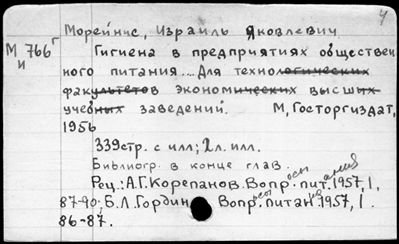 4
Морейнис, Израиль Яковлевич
М 766 г Гигиена в предприятиях обществен
и ного питания...Для технологических
факультетов экономических высших
учебных заведений. М, Госторгиздат,
1956
339стр. с илл; 2л. илл.
Библиогр. в конце глав.
Рец.: А.Г. Корепанов. Вопросы питания 1957, 1,
87-90; Б.Л. Гордин Вопросы питания 1957, 1.
86-87.